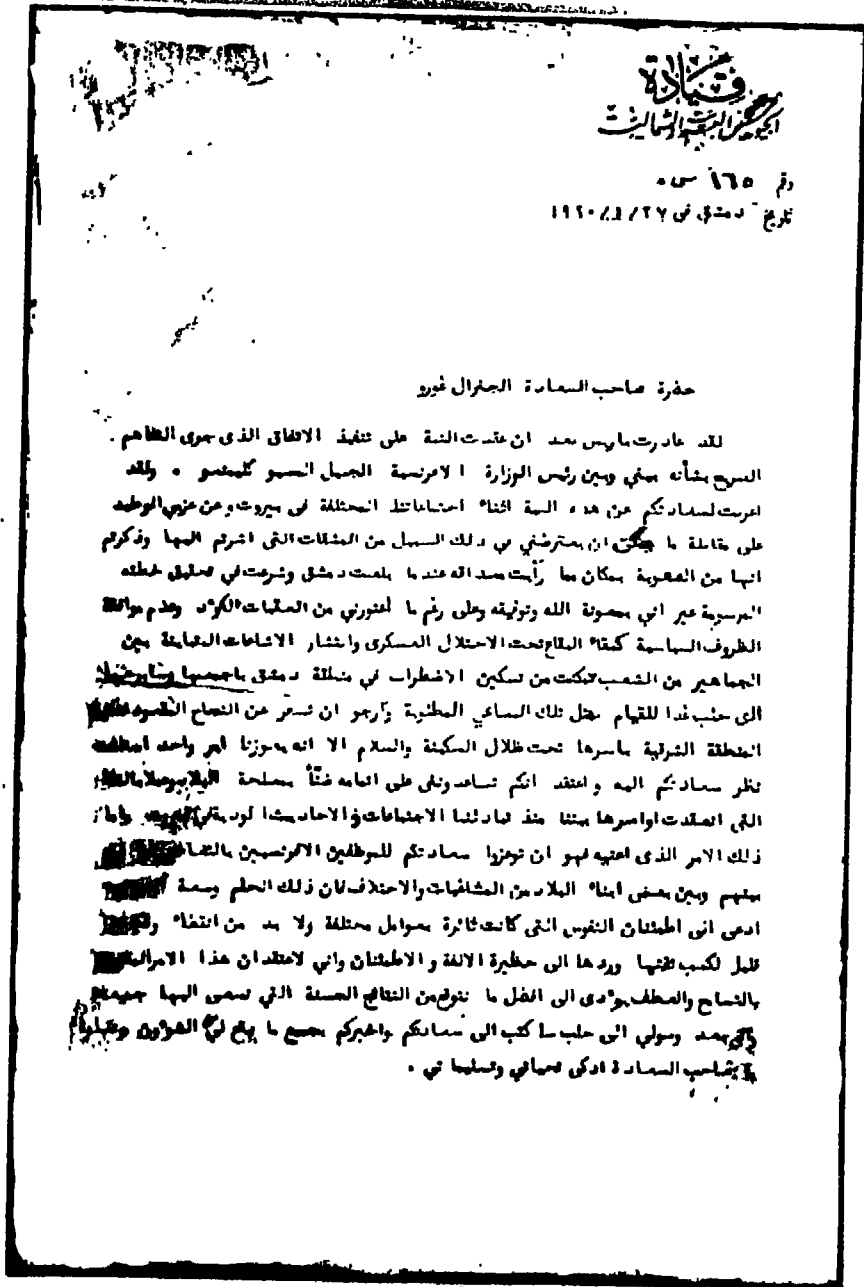 قيادة
الجيوش العربية الشمالية
رقم ١٦٥ س
تاريخ دمشق في ٢٧/١/١٩٢٠
حضرة صاحب السعادة الجنرال غورو
لقد غادرت باريس بعد ان عقدت النية على تنفيذ الاتفاق الذى جرى التفاهم
الصريح بشأنه بيني وبين رئيس الوزارة الافرنسية الجميل المسيو كليمنصو . ولقد
اعربت لسعادتكم عن هذه النية اثناء اجتماعاتنا المختلفة في بيروت وعن عزمي الوطيد
على مقابلة ما يمكن ان يعترضني في ذلك السبيل من المشقات التى اشرتم اليها وذكرتم
انها من الصعوبة بمكان مما رأيت مصداقه عندما بلغت دمشق وشرعت في تحقيق خطته
المرسومة غير اني بمعونة الله وتوفيقه وعلى رغم ما أعتورني من العقبات الكؤد وعدم موافقة
الظروف السياسية كبقاء البقاع تحت الاحتلال العسكرى وانتشار الاشاعات المتباينة بين
الجماهير من الشعب تمكنت من تسكين الاضطراب في منطقة دمشق باجمعها
الى حلب غدا للقيام بمثل تلك المساعي المطلوبة وارجو ان تسفر عن النجاح المقصود
المنطقة الشرقية باسرها تحت ظلال السكينة والسلام الا انه يعوزنا امر واحد
نظر سعادتكم اليه واعتقد انكم تساعدونني على اتمامه ضنّاً بمصلحة البلاد
التى انعقدت اواصرها بيننا منذ تبادلنا الاجتماعات والاحاديث الودية
ذلك الامر الذى اعنيه فهو ان توعزوا سعادتكم للموظفين الافرنسيين
بينهم وبين بعض ابناء البلاد من المشاغبات والاختلاف فان ذلك الحلم وسعة
ادعى الى اطمئنان النفوس التى كانت ثائرة بعوامل مختلفة ولا بد من انقضاء
قليل لكسب ثقتها وردها الى حظيرة الالفة والاطمئنان واني لاعتقد ان هذا الامر
بالتسامح والعطف يؤدى الى افضل ما نتوقع من النتائج الحسنة التي نسعى اليها جميعا
بعد وصولي الى حلب ساكتب الى سعادتكم واخبركم بجميع ما يقع من الشؤون
يا صاحب السعادة ازكى تحياتي وتسليماتي .